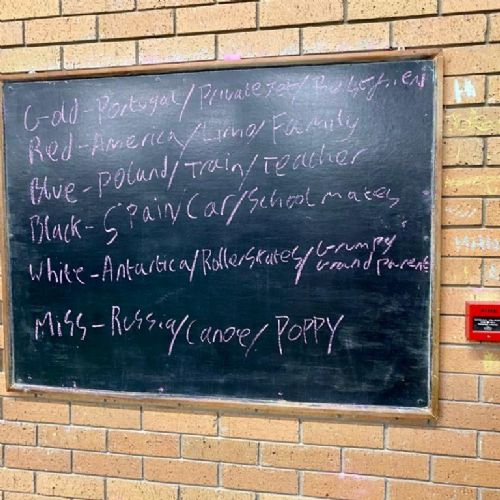 Gold - Portugal / Private Jet / 
Red - America / Limo / Family
Blue - Poland / Train / Teacher
Black - Spain / Car / School mates
White - Antartica / Rollerskates / Grumpy
Grandparent
Miss - Russia / Canoe / POPPY
Hi